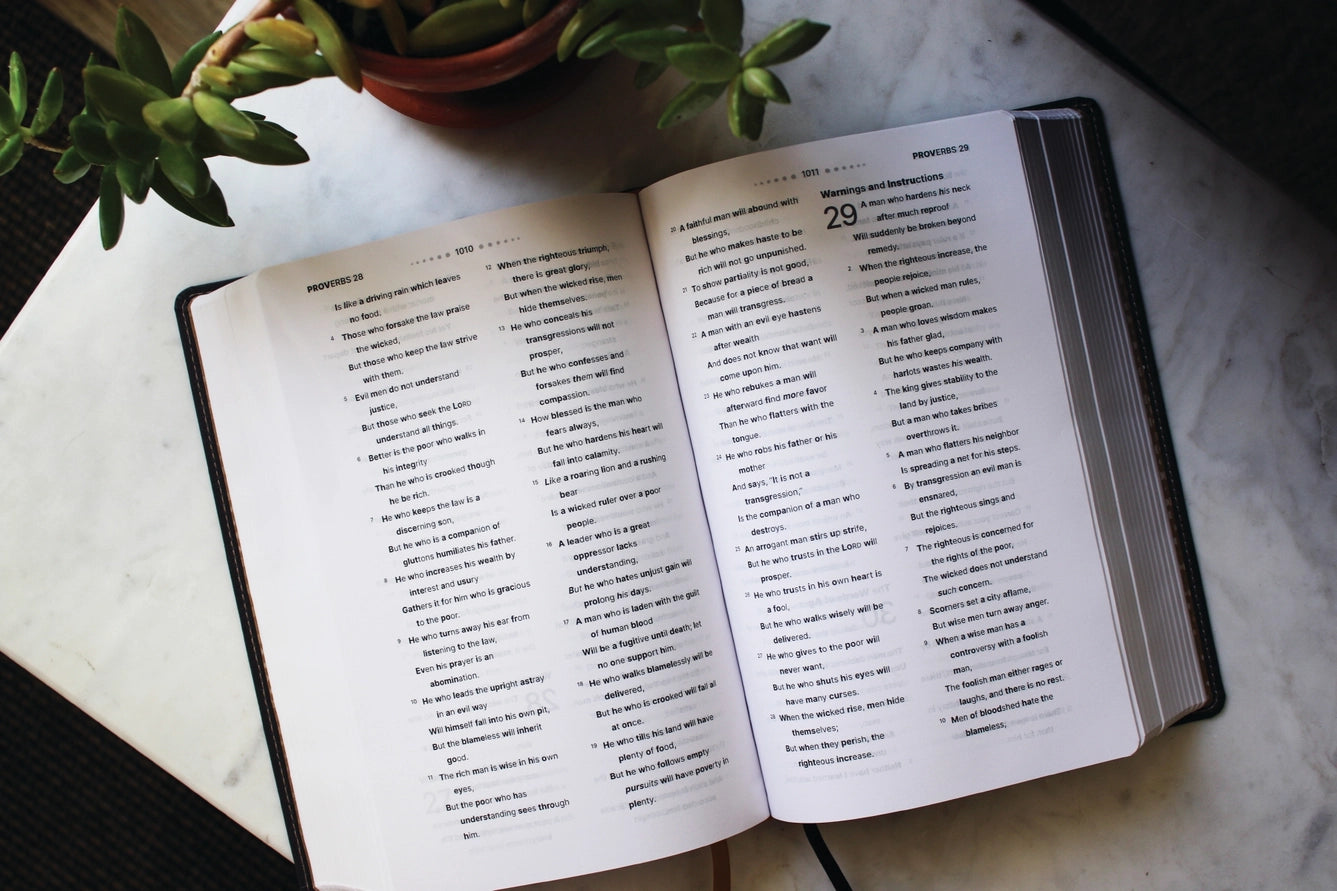 1010
PROVERBS 28
Is like a driving rain which leaves
no food.
4 Those who forsake the law praise
the wicked,
But those who keep the law strive
with them.
5 Evil men do not understand
justice,
But those who seek the LORD
understand all things.
6 Better is the poor who walks in
his integrity
Than he who is crooked though
he be rich.
7 He who keeps the law is a
discerning son,
But he who is a companion of
gluttons humiliates his father.
8 He who increases his wealth by
interest and usury
Gathers it for him who is gracious
to the poor.
9 He who turns away his ear from
listening to the law,
Even his prayer is an
abomination.
10 He who leads the upright astray
in an evil way
Will himself fall into his own pit,
But the blameless will inherit
good.
11 The rich man is wise in his own
eyes,
But the poor who has
understanding sees through
him.
12 When the righteous triumph,
there is great glory,
But when the wicked rise, men
hide themselves.
13 He who conceals his
transgressions will not
prosper,
But he who confesses and
forsakes them will find
compassion.
14 How blessed is the man who
fears always,
But he who hardens his heart will
fall into calamity.
15 Like a roaring lion and a rushing
bear
Is a wicked ruler over a poor
people.
16 A leader who is a great
oppressor lacks
understanding,
But he who hates unjust gain will
prolong his days.
17 A man who is laden with the guilt
of human blood
Will be a fugitive until death; let
no one support him.
18 He who walks blamelessly will be
delivered,
But he who is crooked will fall all
at once.
19 He who tills his land will have
plenty of food,
But he who follows empty
pursuits will have poverty in
plenty.
1011
PROVERBS 29
20 A faithful man will abound with
blessings,
But he who makes haste to be
rich will not go unpunished.
21 To show partiality is not good,
Because for a piece of bread a
man will transgress.
22 A man with an evil eye hastens
after wealth
And does not know that want will
come upon him.
23 He who rebukes a man will
afterward find more favor
Than he who flatters with the
tongue.
24 He who robs his father or his
mother
And says, "It is not a
transgression,"
Is the companion of a man who
destroys.
25 An arrogant man stirs up strife,
But he who trusts in the LORD will
prosper.
26 He who trusts in his own heart is
a fool,
But he who walks wisely will be
delivered.
27 He who gives to the poor will
never want,
But he who shuts his eyes will
have many curses.
28 When the wicked rise, men hide
themselves;
But when they perish, the
righteous increase.
Warnings and Instructions
29 A man who hardens his neck
after much reproof
Will suddenly be broken beyond
remedy.
2 When the righteous increase, the
people rejoice,
But when a wicked man rules,
people groan.
3 A man who loves wisdom makes
his father glad,
But he who keeps company with
harlots wastes his wealth.
4 The king gives stability to the
land by justice,
But a man who takes bribes
overthrows it.
5 A man who flatters his neighbor
Is spreading a net for his steps.
6 By transgression an evil man is
ensnared,
But the righteous sings and
rejoices.
7 The righteous is concerned for
the rights of the poor,
The wicked does not understand
such concern.
8 Scorners set a city aflame,
But wise men turn away anger.
9 When a wise man has a
controversy with a foolish
man,
The foolish man either rages or
laughs, and there is no rest.
10 Men of bloodshed hate the
blameless,